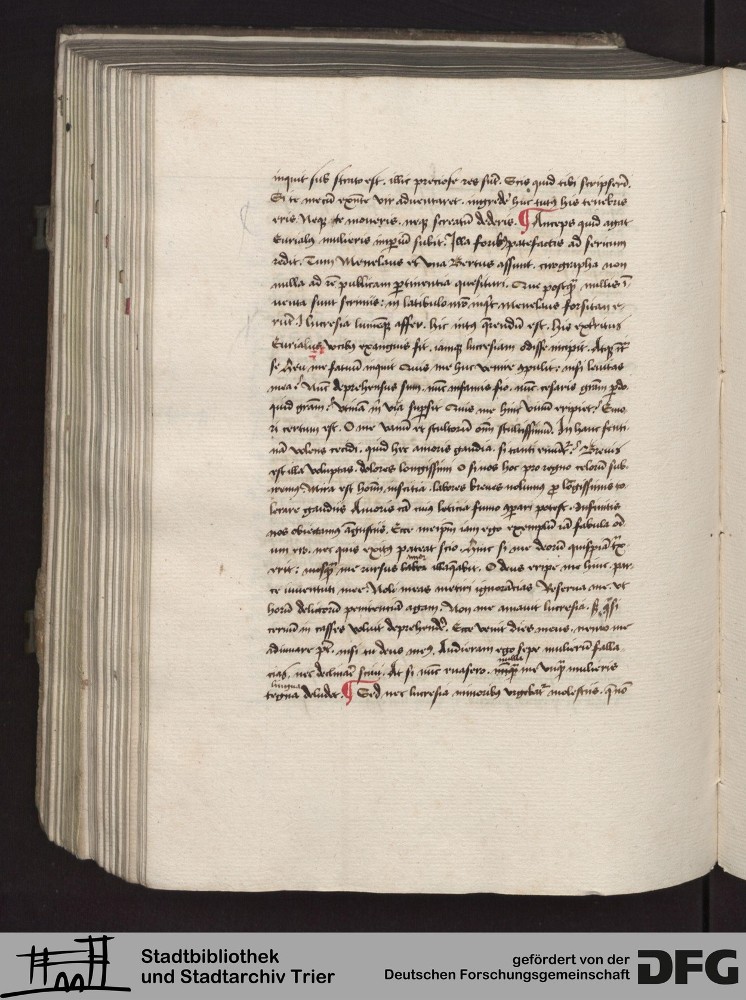 inquit sub strato est. illic preciose res sūt. Scis quid tibi scripserī.
Si te mecū exnte vir adventaret. ingredere huc tutus his tenebris
eris. Neque te moveris. neque screatum dederis. ¶ Anceps quid agat
Eurialus mulieris imperiū subit. Illa foribus patefactis ad sericum
redit. Tum Menelaus et una Bertus assunt. cirographa non
nulla ad rē publicam pertinentia quesituri. Que postquam nullis ī
venta sunt scriniis: in latibulo inquit Menelaus forsitan e-
runt. I lucresia lumenque affer. hic intus querendū est. his exterritus
Eurialus vocibus exanguis fit. iamque lucresiam odisse incipit. Atque
se heu me fatuum inquit Quis me huc venire apulit: nisi levitas
mea? Nunc deprehensus sum. nunc infamis fio. nunc cesaris gratiam perdo.
quid gratiam? utinam in vita supersit Quis me hinc vivum eripiet? Emo
ri certum est. O me vanum et stultorum omnium stultissimum. In hanc senti-
nam volens cecidi. quid hec amoris gaudia. si tanti emuntur? Brevis
est illa voluptas. dolores longissimi O si nos hoc pro regno celorum sub-
iremus. Mira est hominum inscitia. labores breves nolumus pro longissimis to
lerare gaudiis Amoris causa cuius leticia fumo comparari potest. infinitis
nos obiectamus angustiis. Ecce meipsum iam ego exemplum iam fabula omni
um ero. nec quis exitus pateat scio. hinc si me deorum quispiam trax
erit: nusquam me rursus labor illaqueabit. O deus eripe me hinc. par-
ce iuventuti mee. Noli meas metiri ignorancias Reserva me. ut
horum delictorum penitenciam agam. Non me amavit lucresia. sed quasi
cervum in casses voluit deprehendere. Ecce venit dies meus. nemo me
adiuvare potest. nisi tu deus meus. Audieram ego sepe mulierum falla-
cias. nec declinare scivi. At si nunc evasero. nulla me unquam mulieris
techna deludet. ¶ Sed nec lucresia minoribus urgebatur molestiis. que non
Stadtbibliothek
und Stadtarchiv Trier
gefördert von der
Deutschen Forschungsgemeinschaft DFG